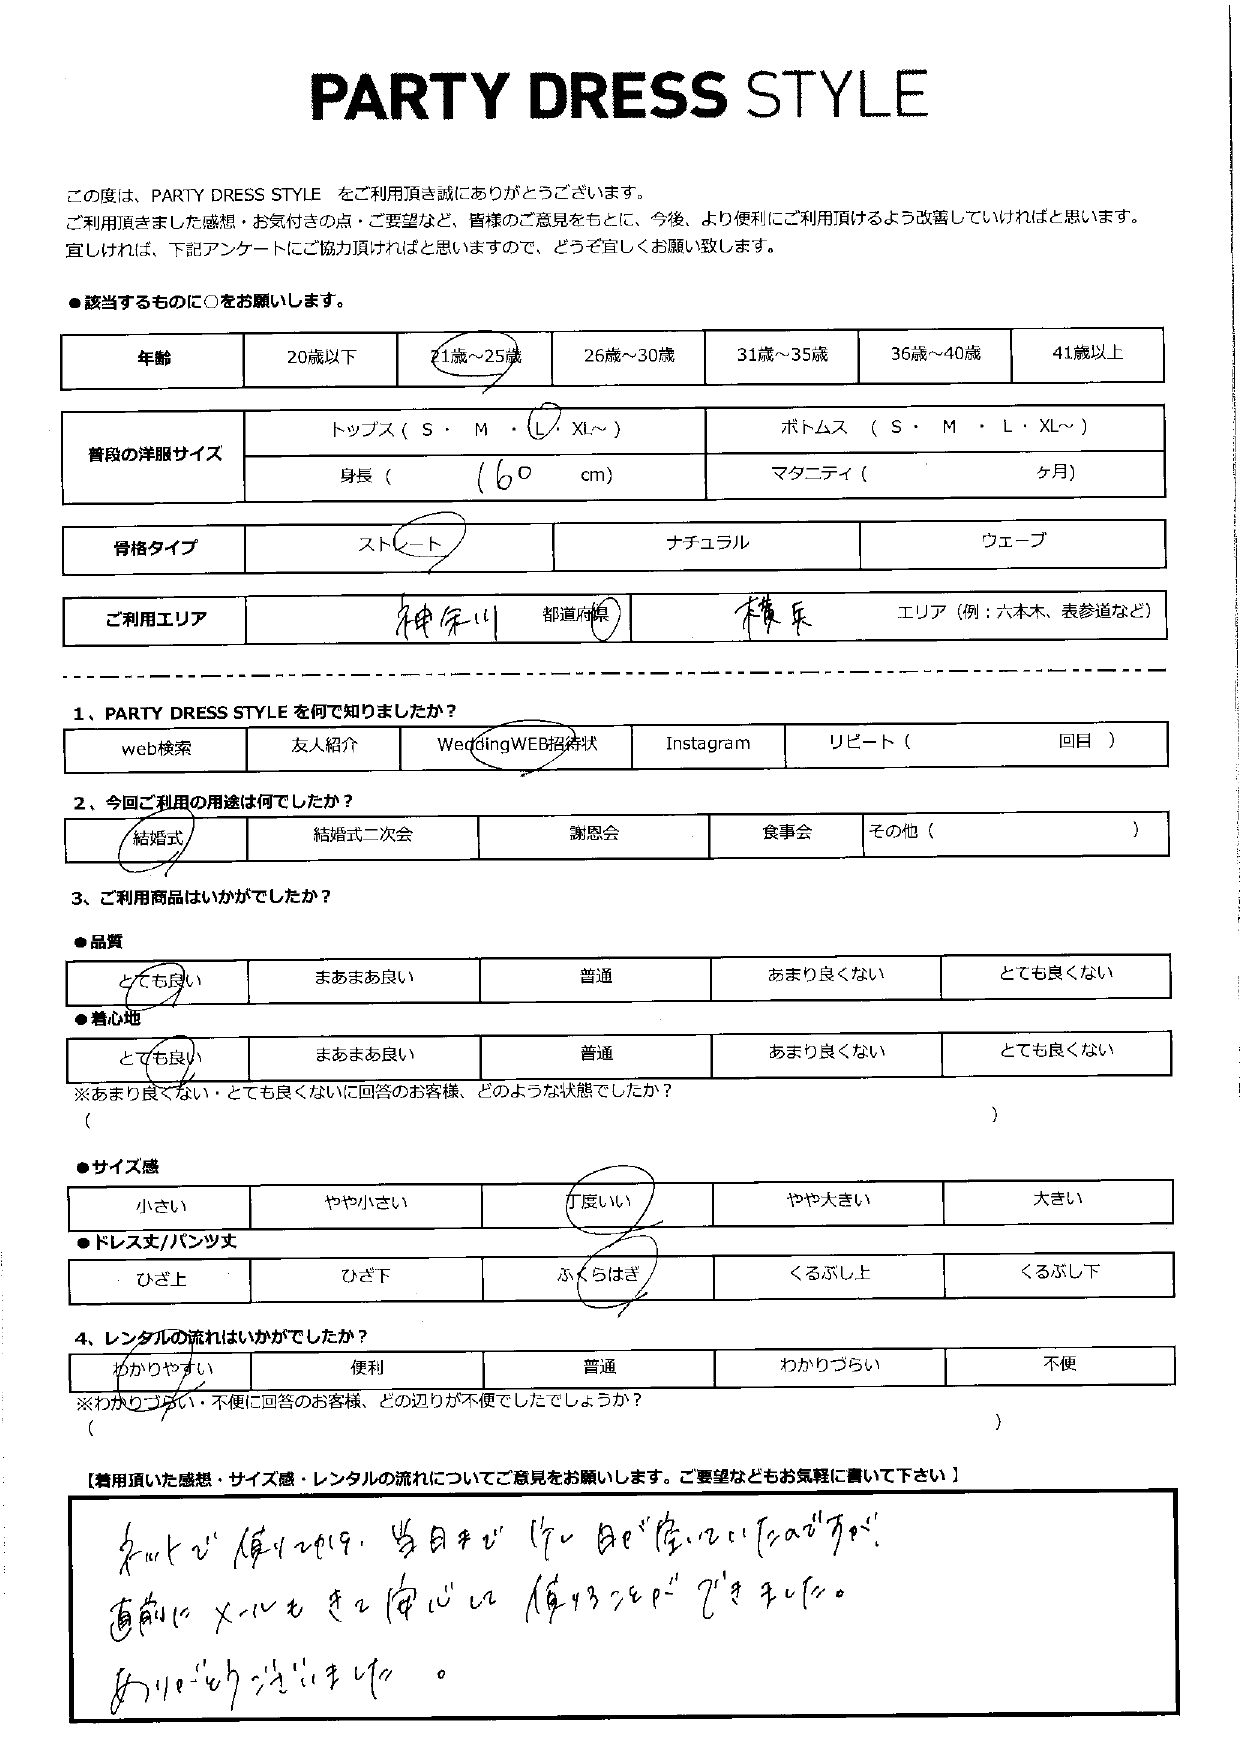 PARTY DRESS STYLE
この度は、PARTY DRESS STYLE をご利用頂き誠にありがとうございます。
ご利用頂きました感想・お気付きの点・ご要望など、皆様のご意見をもとに、今後、より便利にご利用頂けるよう改善していければと思います。
宜しければ、下記アンケートにご協力頂ければと思いますので、どうぞ宜しくお願い致します。
●該当するものに○をお願いします。
年齢 20歳以下 21歳～25歳 26歳～30歳 31歳～35歳 36歳～40歳 41歳以上
普段の洋服サイズ トップス ( S ・ M ・ L ・ XL～ ) ボトムス ( S ・ M ・ L ・ XL～ )
身長 ( 160 cm) マタニティ ( ヶ月)
骨格タイプ ストレート ナチュラル ウェーブ
ご利用エリア 神奈川 都道府県 横浜 エリア（例：六本木、表参道など）
1、PARTY DRESS STYLE を何で知りましたか？
web検索 友人紹介 WeddingWEB招待状 Instagram リピート ( 回目 )
2、今回ご利用の用途は何でしたか？
結婚式 結婚式二次会 謝恩会 食事会 その他 ( )
3、ご利用商品はいかがでしたか？
●品質
とても良い まあまあ良い 普通 あまり良くない とても良くない
●着心地
とても良い まあまあ良い 普通 あまり良くない とても良くない
※あまり良くない・とても良くないに回答のお客様、どのような状態でしたか？
( )
●サイズ感
小さい やや小さい 丁度いい やや大きい 大きい
●ドレス丈/パンツ丈
ひざ上 ひざ下 ふくらはぎ くるぶし上 くるぶし下
4、レンタルの流れはいかがでしたか？
わかりやすい 便利 普通 わかりづらい 不便
※わかりづらい・不便に回答のお客様、どの辺りが不便でしたでしょうか？
( )
【着用頂いた感想・サイズ感・レンタルの流れについてご意見をお願いします。ご要望などもお気軽に書いて下さい 】
ネットで借りてから、当日まで 日が空いていたのですが、
直前にメールもきて安心して借りることができました。
ありがとうございました。